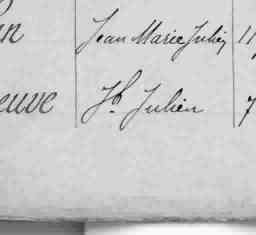 Jean Marie Julien 11
euve Jh Julien 7